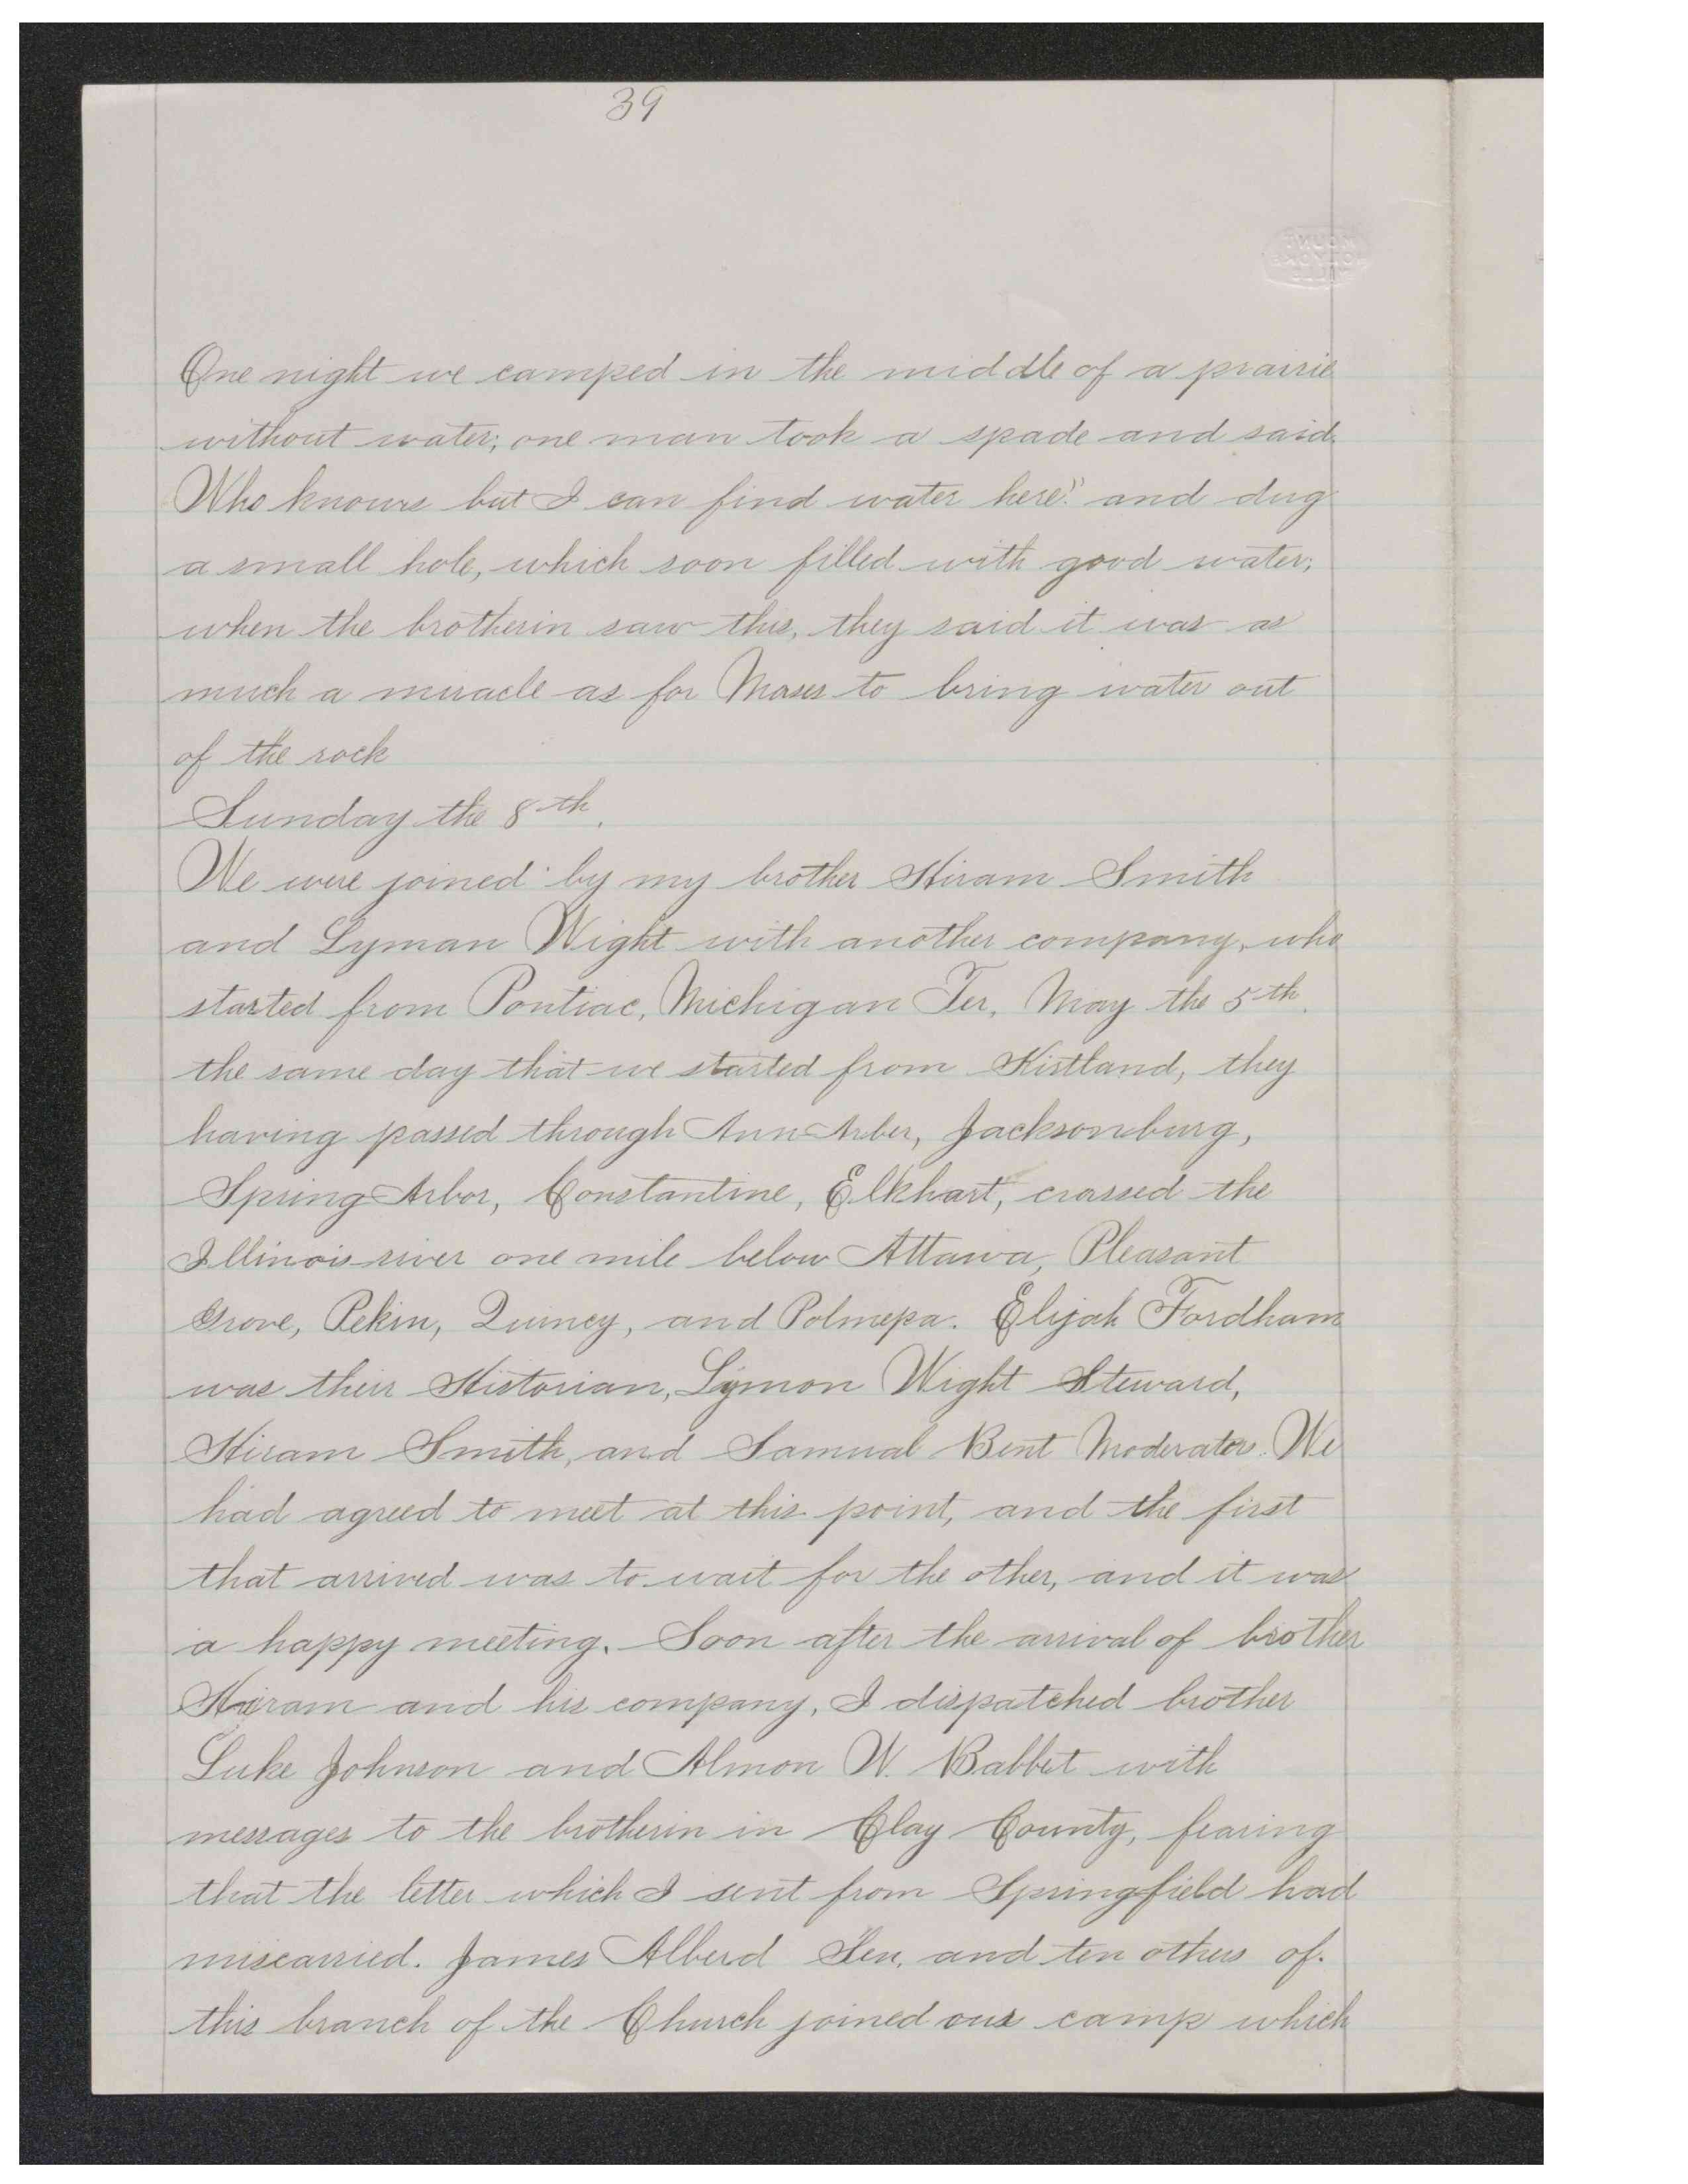 39
MOUNT
HOLYOKE
MILLS
One night we camped in the middle of a prairie
without water; one man took a spade and said.
Who knows but I can find water here." and dug
a small hole, which soon filled with good water;
when the brotherin saw this, they said it was as
much a miracle as for Moses to bring water out
of the rock
Sunday the 8th.
We were joined by my brother Hiram Smith
and Lyman Wight with another company, who
started from Pontiac, Michigan Ter, May the 5th.
the same day that we started from Kirtland, they
having passed through Ann Arber, Jacksonburg,
Spring Arbor, Constantine, Elkhart, crossed the
Illinois river one mile below Attawa, Pleasant
Grove, Pekin, Quincy, and Polmepa. Elijah Fordham
was their Historian, Lymon Wight Steward,
Hiram Smith, and Samual Bent Moderator. We
had agreed to meet at this point, and the first
that arrived was to wait for the other, and it was
a happy meeting. Soon after the arrival of brother
Hiram and his company, I dispatched brother
Luke Johnson and Almon W. Babbet with
messages to the brotherin in Clay County, fearing
that the letter which I sent from Springfield had
miscarried. James Alberd Sen, and ten others of
this branch of the Church joined our camp which